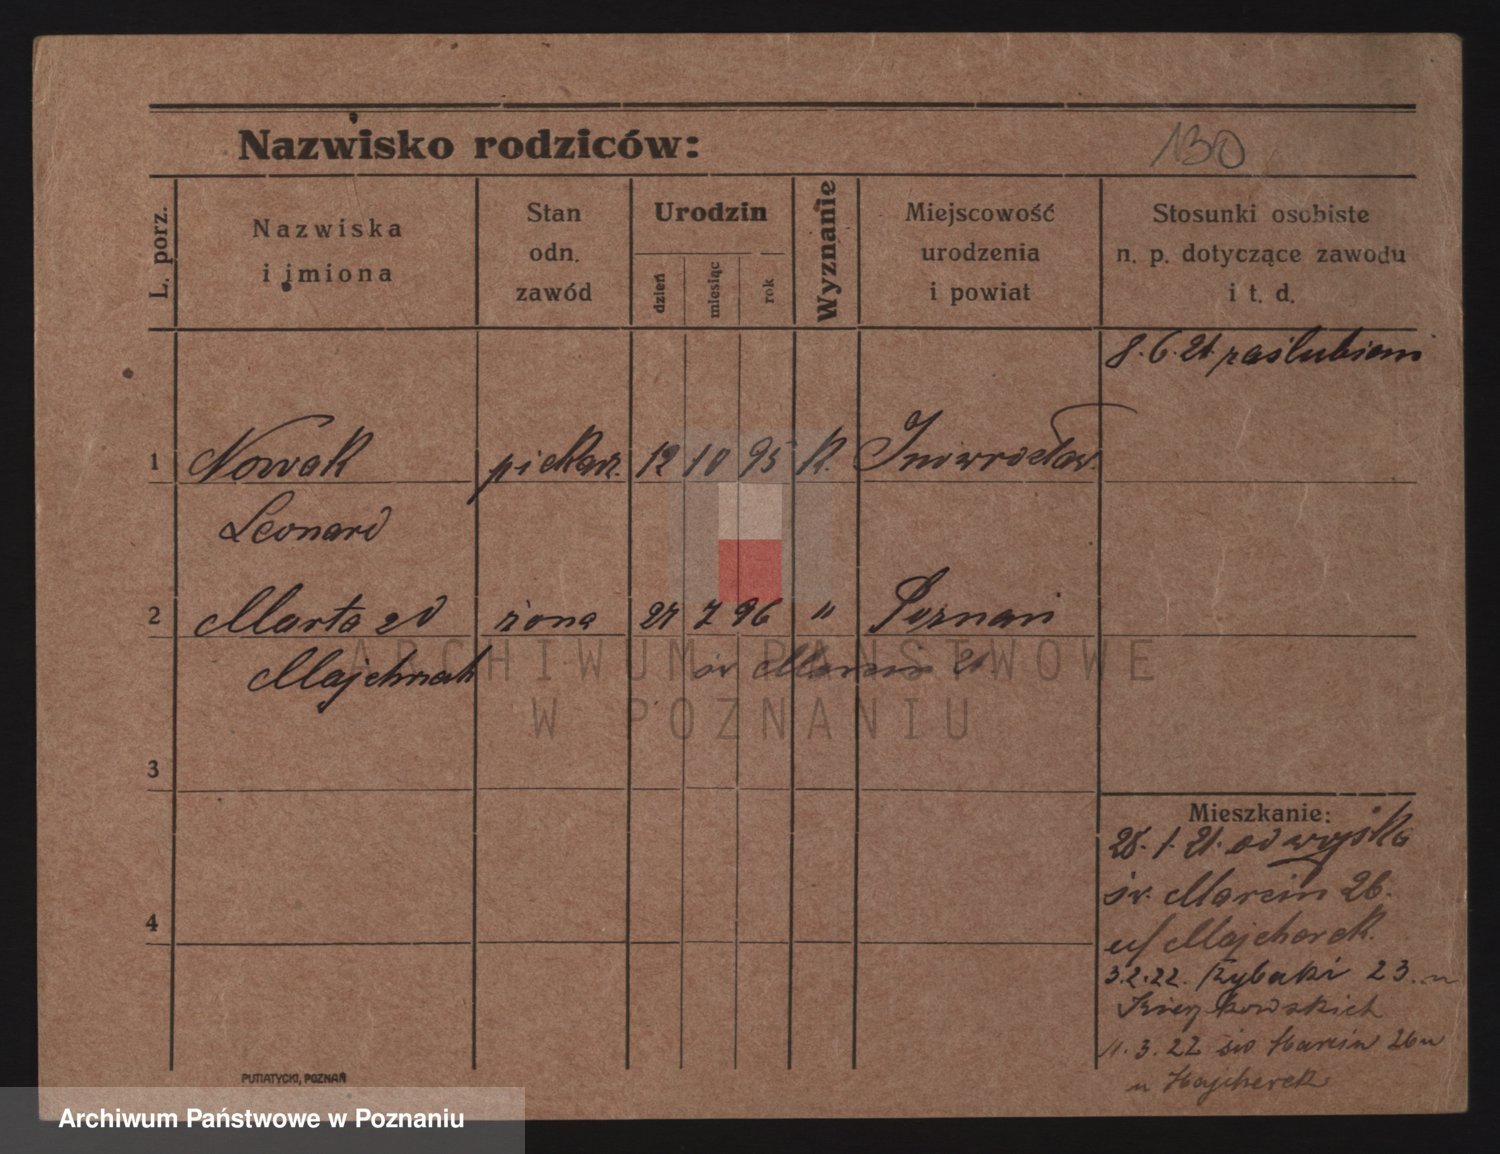 Nazwisko rodziców:
130
L. porz.
Nazwiska
i imiona
Stan
odn.
zawód
Urodzin
dzień
miesiąc
rok
Wyznanie
Miejscowość
urodzenia
i powiat
Stosunki osobiste
n. p. dotyczące zawodu
i t. d.
8. 6. 21. zaślubieni
1 Nowak piekarz. 12 10 95 K. Inowrocław.
Leonard
2 Marta zd żona 27 7 96 " Poznań
Majchrzak św Marcin
3
4
Mieszkanie:
28. 1. 21. od wojska
św. Marcin 26.
u/ Majcherek.
3.2.22. Rybaki 23.
11. 3. 22 św Marcin 26
u Majcherek
PUTIATYCKI, POZNAŃ
ARCHIWUM PAŃSTWOWE
W POZNANIU
Archiwum Państwowe w Poznaniu